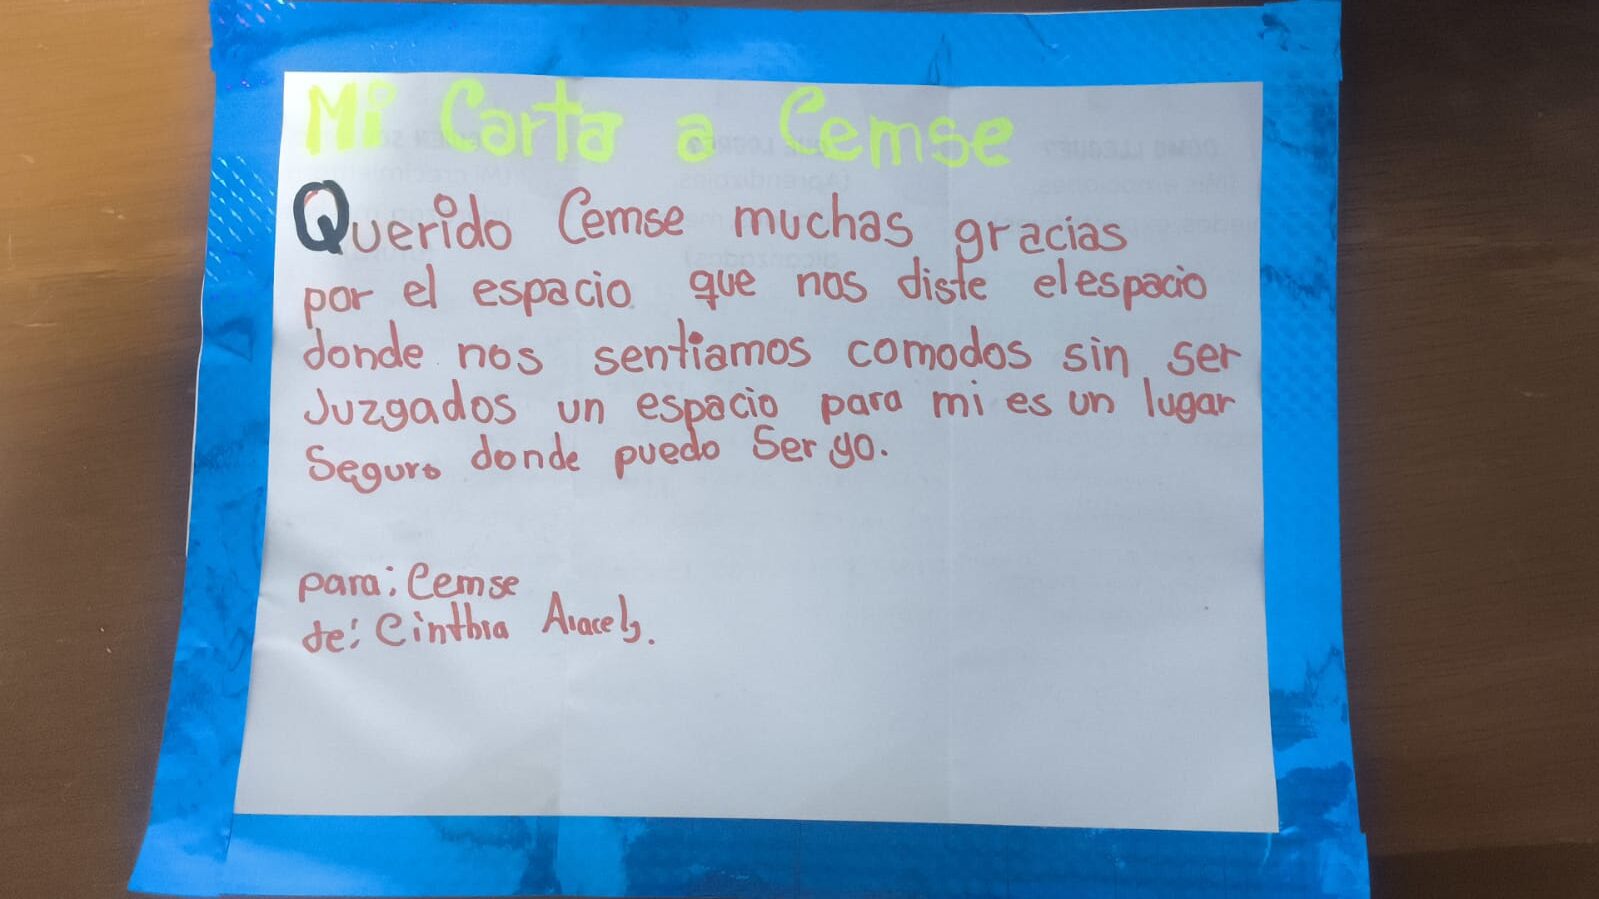 Mi Carta a Cemse
Querido Cemse muchas gracias
por el espacio que nos diste el espacio
donde nos sentiamos comodos sin ser
Juzgados un espacio para mi es un lugar
Seguro donde puedo Ser yo.
para: Cemse
de: Cinthia Aracely.